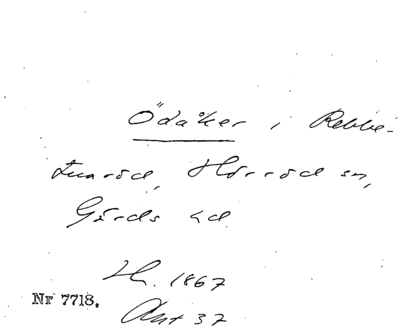 Ödåker i Rebbe-
tuaröd, Hörröd sn,
Gärds hd.
H. 1867
Nr 7718.
Ant 37